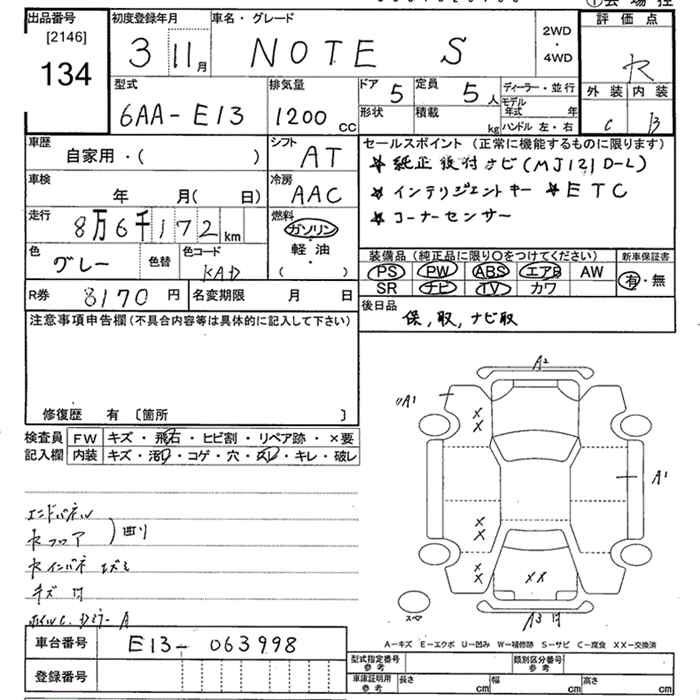 ①会場控
出品番号
[2146]
134
初度登録年月
3 11月
車名・グレード
NOTE S
2WD
・
4WD
評価点
ヤ
外装 内装
C B
型式
6AA-E13
排気量
1200 CC
ドア 5
定員 5人
形状
積載 kg
ディーラー・並行
モデル年式 年
ハンドル 左・右
車歴
自家用・( )
シフト
AT
セールスポイント (正常に機能するものに限ります)
★純正後付ナビ(MJ121D-L)
★インテリジェントキー ★ETC
★コーナーセンサー
車検
年 月( 日)
冷房
AAC
走行
8万6千172km
燃料
ガソリン
・
軽油
・
( )
色
グレー
色替
色コード
KAD
装備品 (純正品に限り○をつけてください)
PS PW ABS エアB AW
SR ナビ TV カワ
新車保証書
有・無
R券 8170円
名変期限 月 日
後日品
保,取,ナビ取
注意事項申告欄(不具合内容等は具体的に記入して下さい)
修復歴 有〔箇所 〕
検査員記入欄
FW キズ・飛石・ヒビ割・リペア跡・×要
内装 キズ・汚レ・コゲ・穴・スレ・キレ・破レ
エンドパネル
セフロア
凹リ
キズ 凹
A2
A1
X
X
A1
X
X
X
X
XX
スペア
A3凹
A-キズ E-エクボ U-凹み W-補修跡 S-サビ C-腐食 XX-交換済
車台番号 E13-063998
登録番号
型式指定番号
参考
類別区分番号
参考
車庫証明用
参考
長さ cm 幅 cm 高さ cm